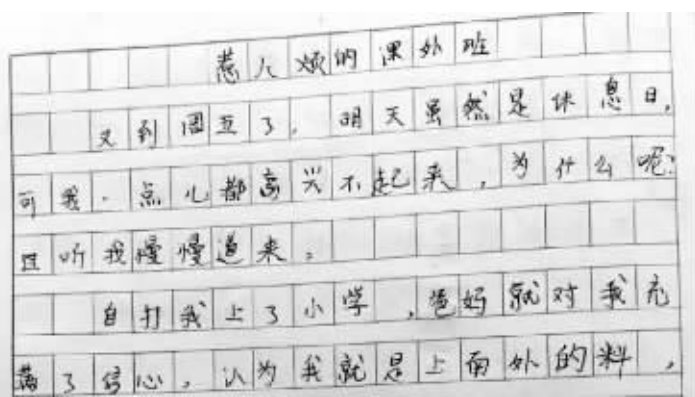 惹人烦的课外班
又到周五了，明天虽然是休息日，
可我一点儿都高兴不起来，为什么呢？
且听我慢慢道来。
自打我上了小学，爸妈就对我充
满了信心，认为我就是上面外的料，